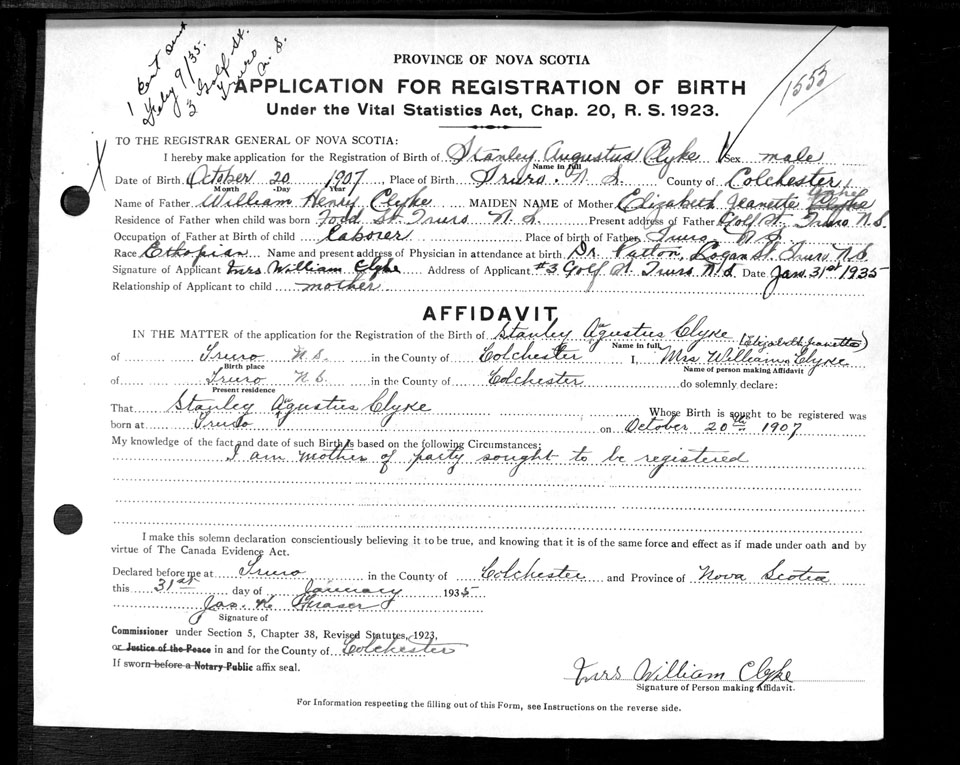 1 Cert sent
Feby 9/35.
3 Golf St.
Truro
N. S.
1553
PROVINCE OF NOVA SCOTIA
APPLICATION FOR REGISTRATION OF BIRTH
Under the Vital Statistics Act, Chap. 20, R. S. 1923.
TO THE REGISTRAR GENERAL OF NOVA SCOTIA:
I hereby make application for the Registration of Birth of Stanley Augustus Clyke Sex male
Name in full
Date of Birth October 20 1907 Place of Birth Truro. N S. County of Colchester
Month Day Year
Name of Father William Henry Clyke MAIDEN NAME of Mother Elizabeth Jeanette Clyke
Residence of Father when child was born Todd St. Truro N. S. Present address of Father Golf St. Truro N.S.
Occupation of Father at Birth of child laborer Place of birth of Father Truro N. S.
Race Ethopian Name and present address of Physician in attendance at birth Dr. Patton, Logan St. Truro N.S.
Signature of Applicant Mrs William Clyke Address of Applicant #3 Golf St. Truro N.S. Date Jan. 31st 1935
Relationship of Applicant to child mother
AFFIDAVIT
IN THE MATTER of the application for the Registration of the Birth of Stanley Augustus Clyke
Name in full (Elizabeth Jeanette)
of Truro N.S. in the County of Colchester I, Mrs William Clyke
Birth place Name of person making Affidavit
of Truro N.S. in the County of Colchester do solemnly declare:
Present residence
That Stanley Augustus Clyke Whose Birth is sought to be registered was
born at Truro on October 20th 1907
My knowledge of the fact and date of such Birth is based on the following Circumstances:
I am mother of party sought to be registered
I make this solemn declaration conscientiously believing it to be true, and knowing that it is of the same force and effect as if made under oath and by
virtue of The Canada Evidence Act.
Declared before me at Truro in the County of Colchester and Province of Nova Scotia
this 31st day of January 1935
Jas. K. Fraser
Signature of
Commissioner under Section 5, Chapter 38, Revised Statutes, 1923,
or Justice of the Peace in and for the County of Colchester
If sworn before a Notary Public affix seal.
Mrs William Clyke
Signature of Person making Affidavit.
For Information respecting the filling out of this Form, see Instructions on the reverse side.